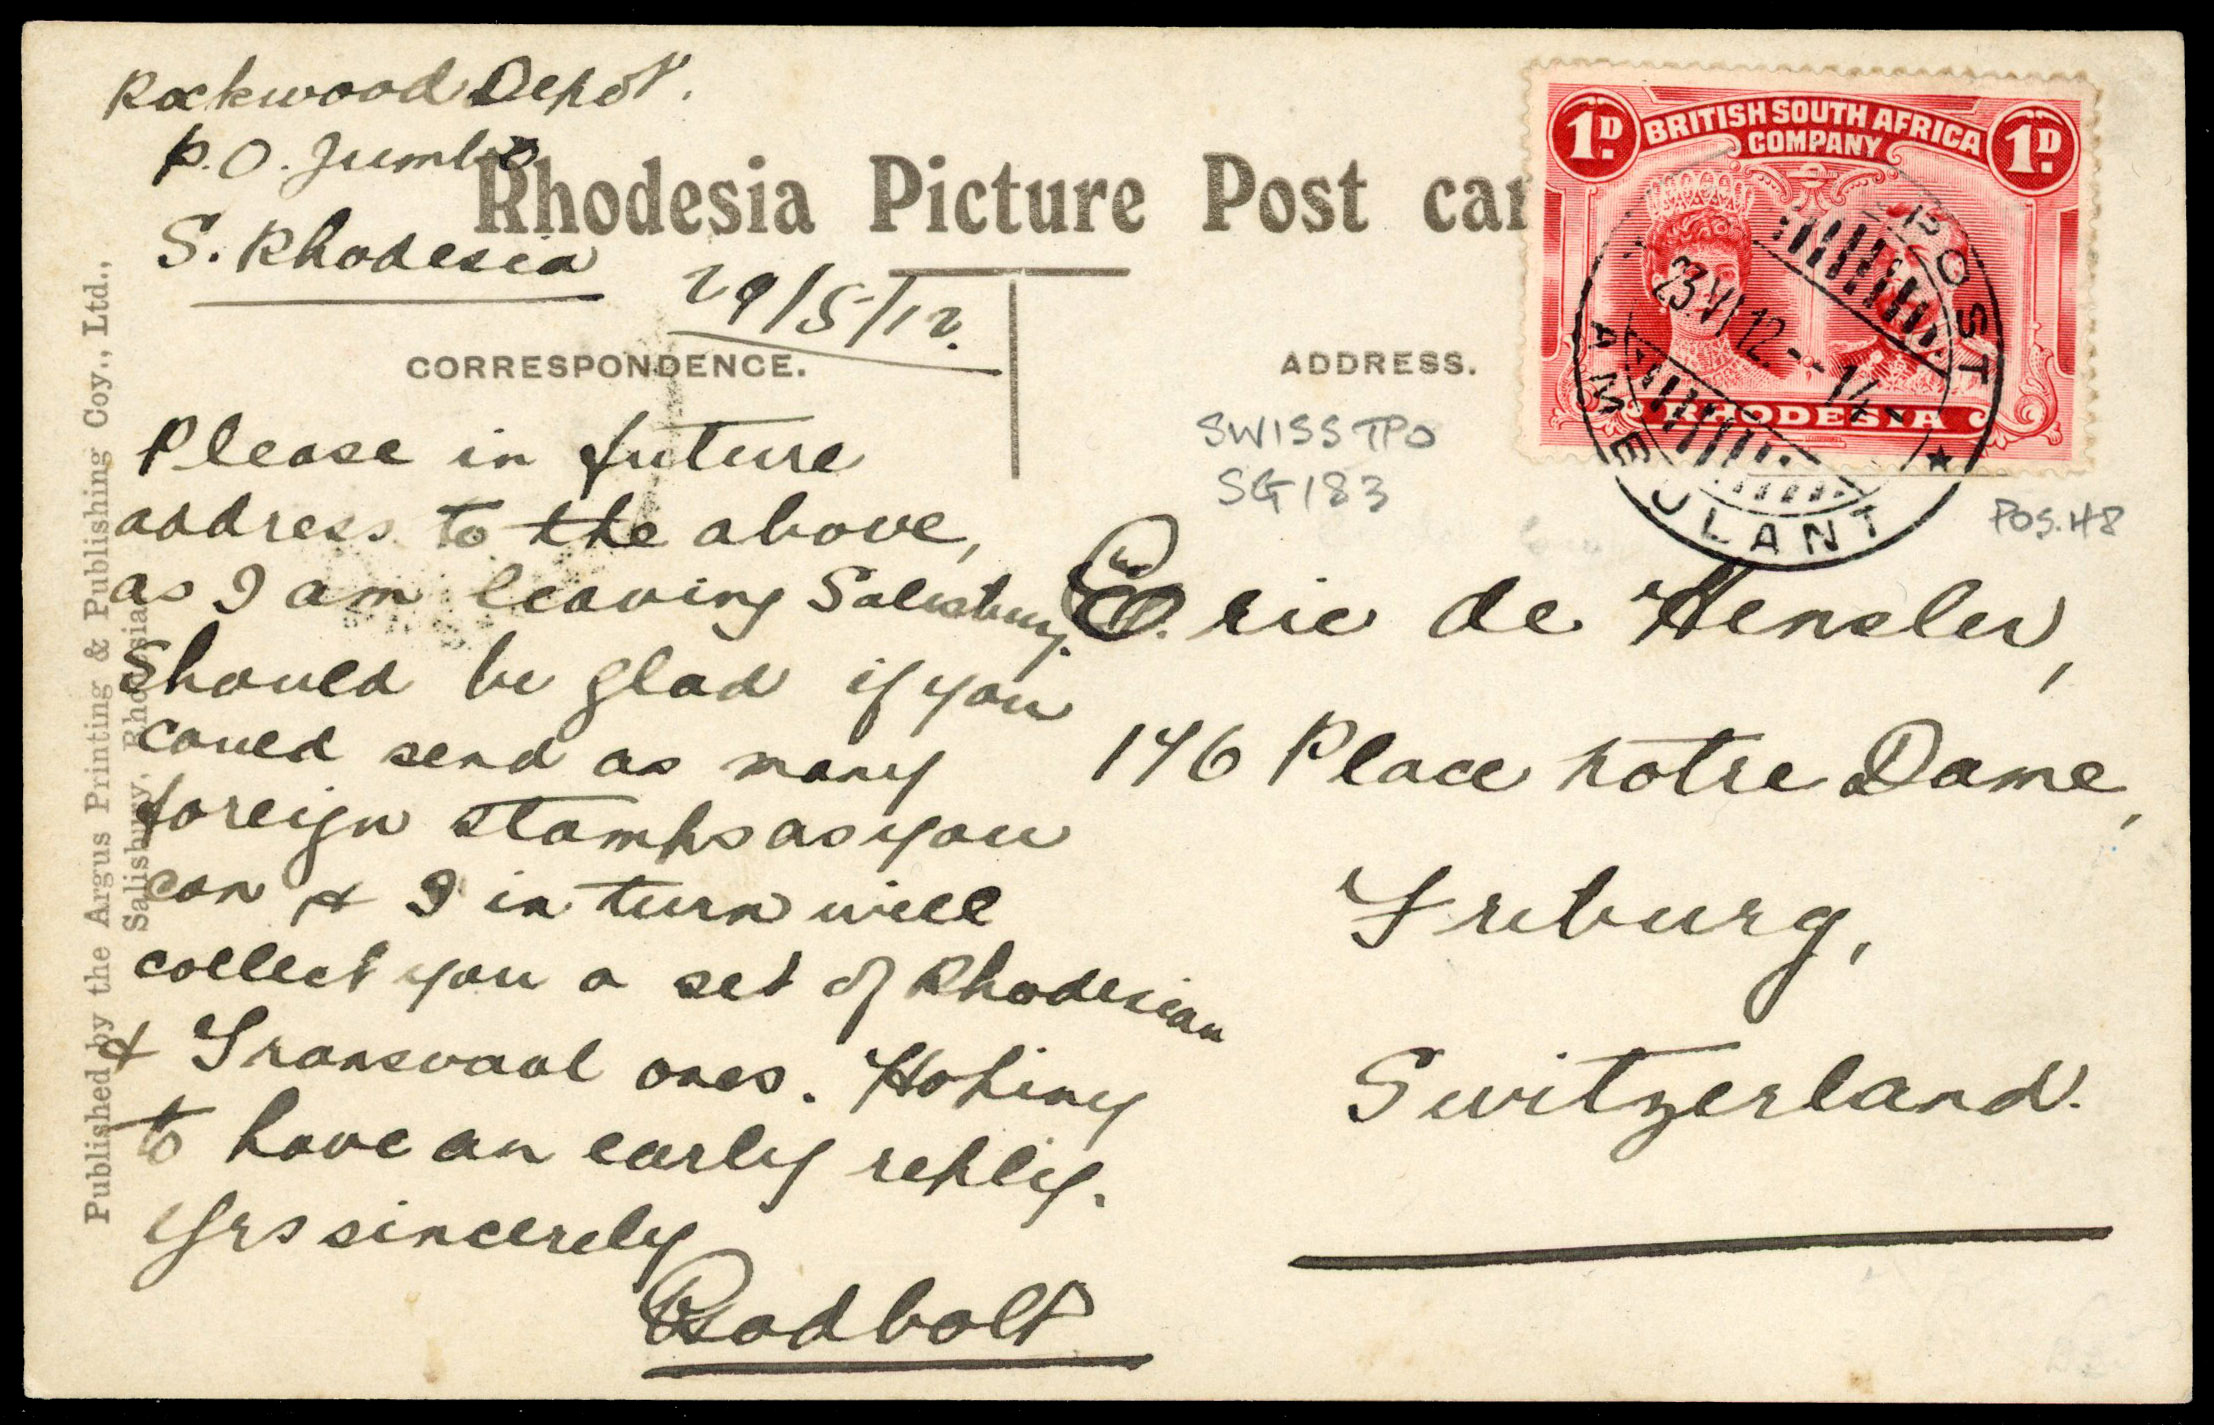 Rockwood Depot.
P.O. Jumbo
S. Rhodesia
29/5/12.
Rhodesia Picture Post car
CORRESPONDENCE.
ADDRESS.
Please in future
address to the above,
as I am leaving Salisbury.
Should be glad if you
could send as many
foreign stamps as you
can & I in turn will
collect you a set of Rhodesian
& Transvaal ones. Hoping
to have an early reply.
Yrs sincerely
Godbolt
Published by the Argus Printing & Publishing Coy., Ltd.,
Salisbury, Rhodesia
1D. BRITISH SOUTH AFRICA 1D.
COMPANY
RHODESIA
POST
23.VI.12 - 14
AMBULANT
SWISS TPO
SG 183
POS. H8
Eric de Hensler,
146 Place notre Dame,
Friburg,
Switzerland.